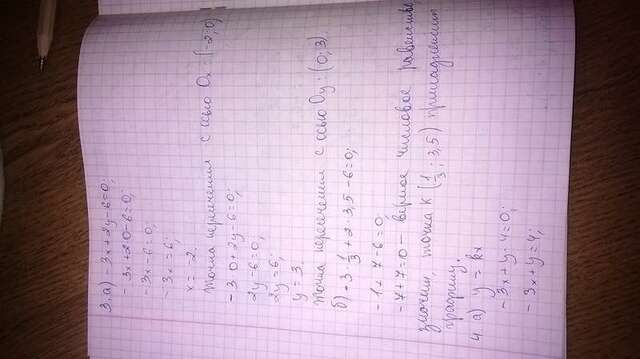 3. а) -3x+2y-6=0;
-3x+2·0-6=0;
-3x-6=0;
-3x=6;
x=-2.
Точка пересечения с осью Ox: (-2; 0)
-3·0+2y-6=0;
2y-6=0;
2y=6;
y=3.
Точка пересечения с осью Oy: (0; 3)
б) -3·1/3+2·3,5-6=0;
-1+7-6=0
-7+7=0 - верное числовое равенство
значит, точка K (1/3; 3,5) принадлежит
графику.
4. а) y=kx
-3x+y-4=0;
-3x+y=4;